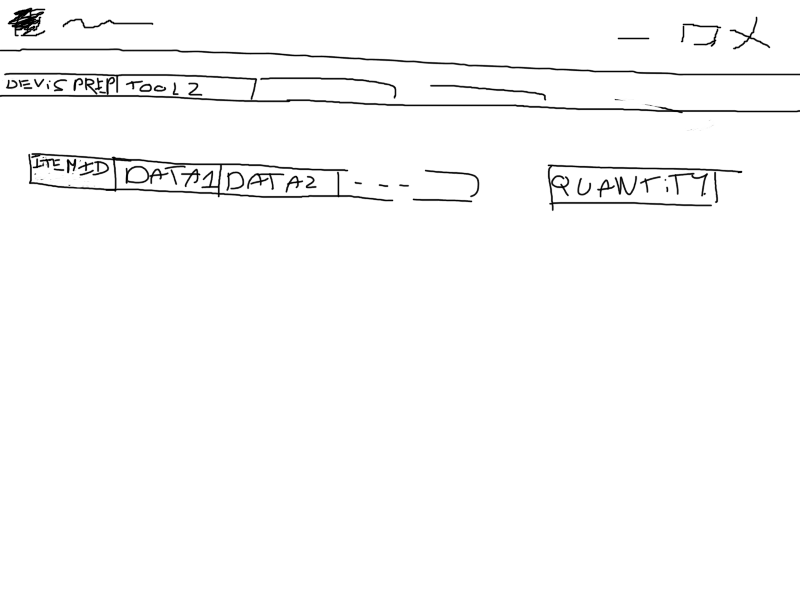 DEVIS PREP TOOL2
ITEMID DATA1 DATA2 QUANTITY